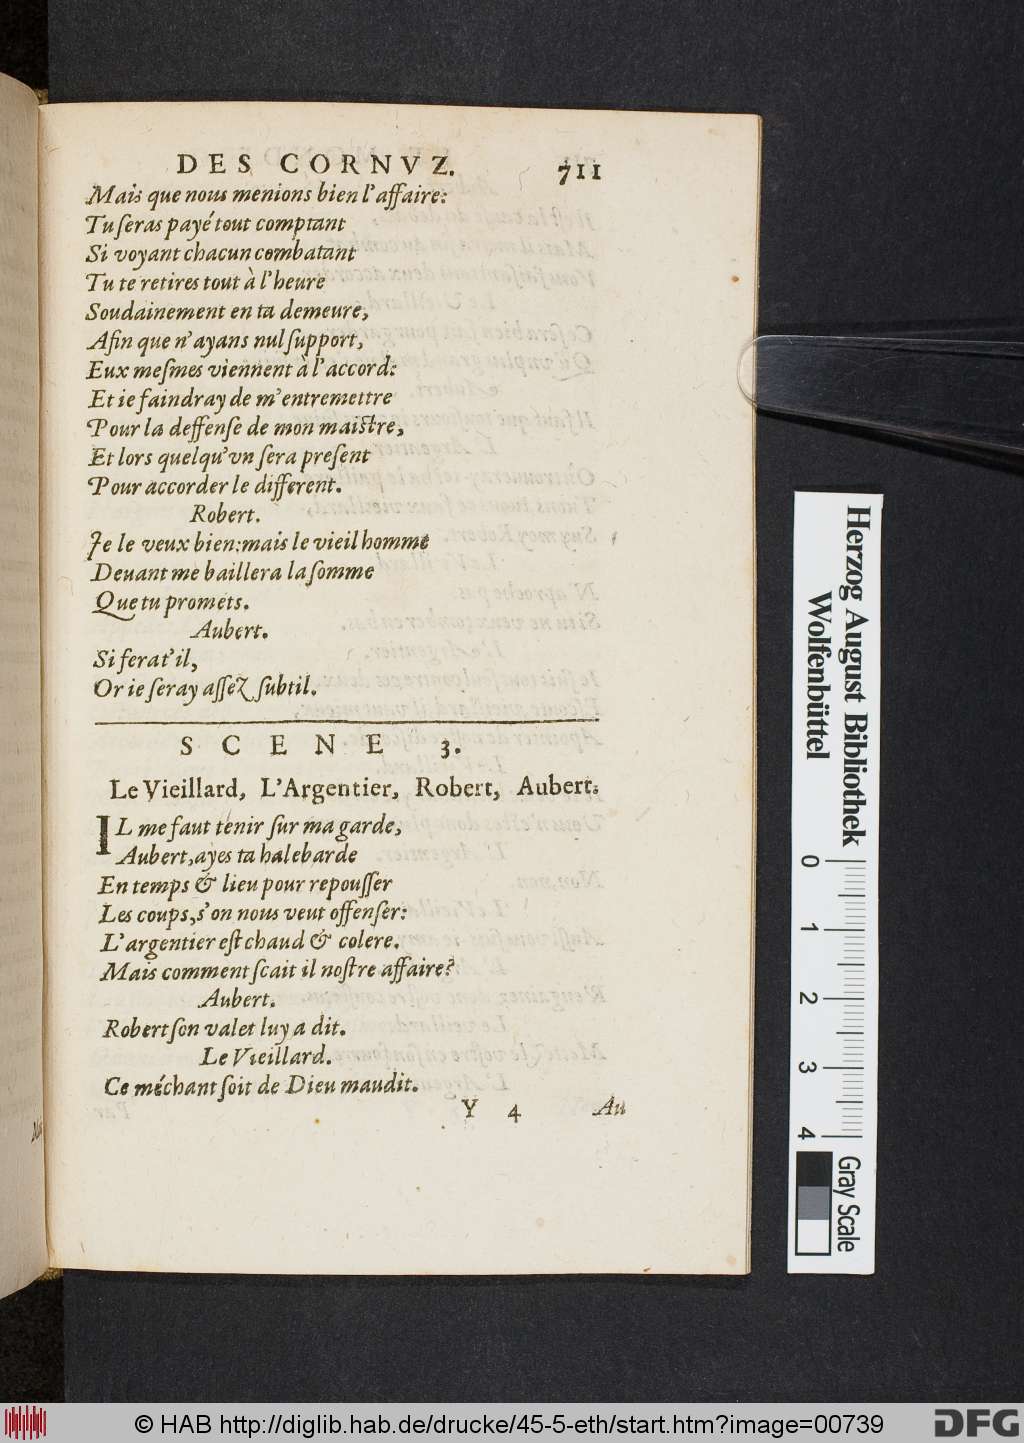 DES CORNVZ. 711
Mais que nous menions bien l'affaire:
Tu ſeras payé tout comptant
Si voyant chacun combatant
Tu te retires tout à l'heure
Soudainement en ta demeure,
Afin que n'ayans nul ſupport,
Eux meſmes viennent à l'accord:
Et ie faindray de m'entremettre
Pour la deffenſe de mon maiſtre,
Et lors quelqu'vn ſera preſent
Pour accorder le different.
Robert.
Je le veux bien: mais le vieil homme
Deuant me baillera la ſomme
Que tu promets.
Aubert.
Si ferat'il,
Or ie ſeray aſſeZ ſubtil.
SCENE 3.
Le Vieillard, L'Argentier, Robert, Aubert.
IL me faut tenir ſur ma garde,
Aubert, ayes ta halebarde
En temps & lieu pour repouſſer
Les coups, s'on nous veut offenſer:
L'argentier eſt chaud & colere.
Mais comment ſcait il noſtre affaire?
Aubert.
Robert ſon valet luy a dit.
Le Vieillard.
Ce méchant ſoit de Dieu maudit.
Y 4 Au
Herzog August Bibliothek
Wolfenbüttel
0 1 2 3 4
Gray Scale
© HAB http://diglib.hab.de/drucke/45-5-eth/start.htm?image=00739
DFG